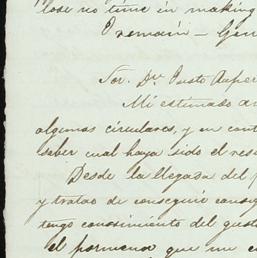 lose no time in making
I remain — Gen
Sor. Dn. Justo Auper
Mi estimado am
algunas circulares, y en cont
saber cual haya sido el res
Desde la llegada del p
y tratao de conseguir consig
tengo conocimiento del gusto
el pormenor que me c